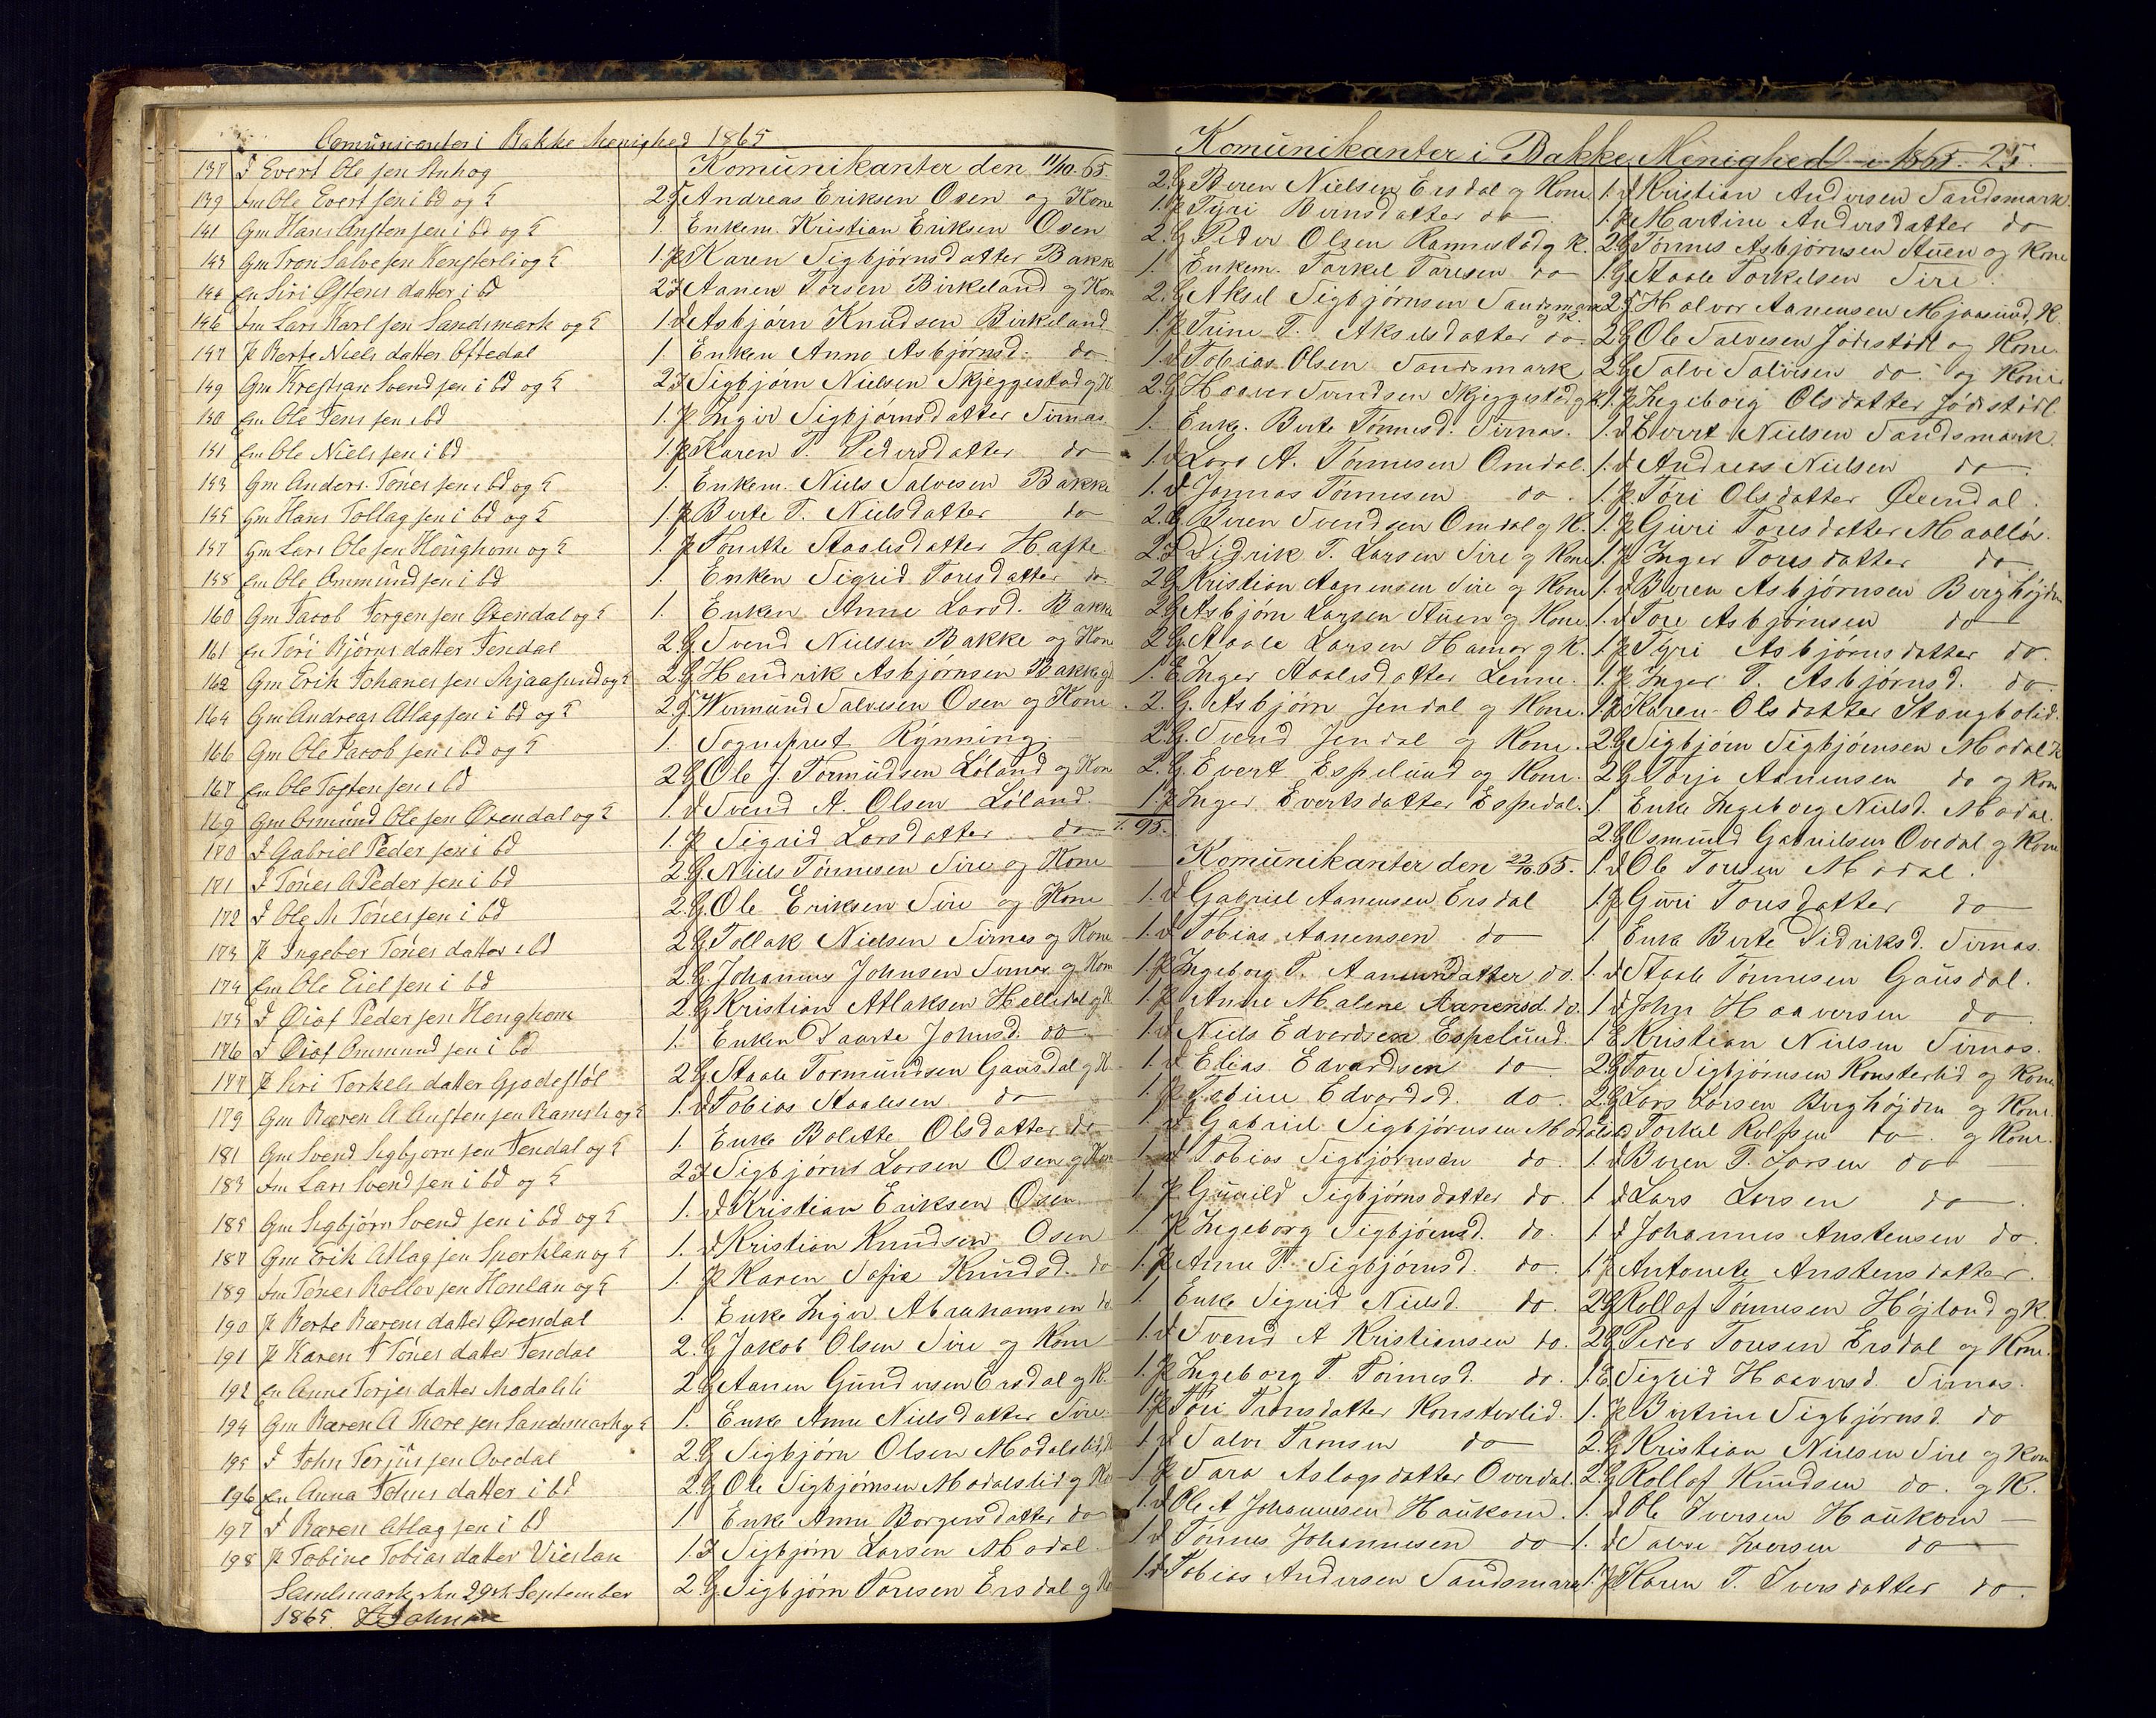 Comunicanter i Bakke Menighed 1865
137 J Evert Ole sen Stuhog
139 Fm Ole Evert sen i bd og E
141 Gm Hans Austen sen i bd og E
143 Gm Tron Salve sen Kensterli og E
144 En Siri Østens datter i bd
146 Fm Lars Karl sen Sandsmark og E
147 P Berte Niels datter Oftedal
149 Gm Krestian Svend sen i bd og E
150 Em Ole Jens sen i bd
151 Em Ole Niels sen i bd
153 Gm Anders Tönes sen i bd og E
155 Gm Hans Tollag sen i bd og E
157 Gm Lars Ole sen Houghom og E
158 Em Ole Ommund sen i bd
160 Gm Jacob Jorgen sen Øvendal og E
161 En Töri Bjørns datter Jendal
162 Gm Erik Johanes sen Mjaasund og E
164 Gm Andreas Atlag sen i bd og E
166 Gm Ole Jacob sen i bd og E
167 Em Ole Tosten sen i bd
169 Gm Osmund Ole sen Øvendal og E
170 J Gabriel Peder sen i bd
171 J Tönes A Peder sen i bd
172 J Ole M Tönes sen i bd
173 P Ingeber Tönes datter i bd
174 Em Ole Eiel sen i bd
175 J Oiaf Peder sen Honghom
176 J Oiaf Ommund sen i bd
177 P Siri Torkels datter Gjødestöl
179 Gm Bæren A Austen sen Ramsli og E
181 Gm Svend Segbjorn sen Jendal og E
183 Fm Lars Svend sen i bd og E
185 Gm Segbjörn Svend sen i bd og E
187 Gm Erik Atlag sen Sporklan og E
189 Fm Tönes Rollov sen Honlan og E
190 P Berte Bærens datter Øvendal
191 P Karen T Tönes datter Jendal
192 En Anne Terjes datter Modalsli
194 Gm Bæren A Thore sen Sandsmark og E
195 J John Terjus sen Ovedal
196 En Anna Johns datter i bd
197 J Bæren Atlag sen i bd
198 P Tobine Tobias datter Vieslan
Sandsmark den 29de September
1865
Komünikanter den 11/10. 65.
2 F Andreas Eriksen Osen og Kone
1. Enkem. Kristian Eriksen Osen
1. P Karen Sigbjørnsdatter Bakke
2 F Aanen Torsen Birkeland og Kon
1 J Asbjørn Knudsen Birkeland
1. Enken Anne Asbjørnsd. do
2 F Sigbjørn Nielsen Skjeggestad og K
1. P Inger Sigbjørnsdatter Sirnæs
1. P Karen T. Pedersdatter do
1. Enkem. Niels Salvesen Bakke
1. P Berte T. Nielsdatter do
1. P Tonette Staalesdatter Hafte
1. Enken Sigrid Toresdatter do
1. Enken Anne Larsd. Bakke
2 G Svend Nielsen Bakke og Kon
2 G Hendrik Asbjørnsen Bakke og
2 G Wermund Salvesen Osen og Kone
1. Sogneprest Rynning
2 G Ole J. Tormudsen Løland og Kon
1. J Svend A. Olsen Løland.
1. P Sigrid Larsdatter do
2 G. Niels Tønnesen Sire og Kone
2. G. Ole Eriksen Sire og Kone
2 G Tollak Nielsen Sirnæs og Kone
2. G Johannes Johnsen Sirnæs og Kon
2 G Kristian Atlaksen Helledal og K
1. Enken Taarte Johnsd. do
2 G Staale Tormundsen Gausdal og K
1. J Tobias Staalesen do
1 Enke Bolette Olsdatter do
2 F Sigbjørn Larsen Osen og Kon
1. J Kristian Eriksen Osen
1. J Kristian Knudsen Osen
1. P Karen Sofie Knudsd. do
1. Enke Inger Abrahamsen do
2. G Jakob Olsen Sire og Kone
2 G Aanen Gundersen Ersdal og K.
1. Enke Anne Nielsdatter Sire
2. G Sigbjørn Olsen Modalslid
2. G Ole Sigbjørnsen Modalslid og Ko
1 Enke Anne Borgersdatter do
1. F Sigbjørn Larsen Modal
2 G. Sigbjørn Toresen Ersdal og K
Komünikanter i Bakke Menighed i 1865. 25.
2. G Beren Nielsen Ersdal og Kone
1. P Tyri Bernsdatter do
2. G Peder Olsen Ramestad og K.
1. Enkem. Torkel Toresen do
2. G Aksel Sigbjørnsen Sandsmark og K.
1. P Trine T. Akselsdatter do
1. J Tobias Olsen Sandsmark
2. G Haaver Svendsen Skjeggestad og K.
1. Enke. Berte Tønnesd. Sirnæs.
1. J Lars A. Tønnesen Omdal.
1. J Jonnas Tønnesen do.
2. G Beren Svendsen Omdal og K.
2. F Didrik T. Larsen Sire og Kone
2 G Kristian Aanensen Sire og Kone
2 G Asbjørn Larsen Stuen og Kone.
2 G Staale Larsen Hamar og K.
1. E Inger Staalesdatter Lenne.
2. G. Asbjørn Jendal og Kone.
2 G. Svend Jendal og Kone.
2. G. Evert Espelund og Kone.
1. P Inger Evertsdatter Espedal.
95.
Komünikanter den 22/10. 65.
1. J Gabriel Aanensen Ersdal
1. J Tobias Aanensen do
1. P Ingeborg T. Aanensdatter do.
1. P Anne Malene Aanensd. do.
1. J Niels Edvardsen Espelund.
1. J Elias Edvardsen do
1. P Tobine Edvardsd. do.
1 J Gabriel Sigbjørnsen Modalslid
1 J Tobias Sigbjørnsen do.
1 P Gunild Sigbjørnsdatter do.
1. P Ingeborg Sigbjørnsd. do.
1. P Anne T. Sigbjørnsd. do.
1 Enke Sigrid Nielsd. do.
1. J Svend A Kristiansen do.
1. P Ingeborg T. Tønnesd. do.
1 P Tøri Tronsdatter Konsterlid.
1 J Salve Tronsen do
1 P Sara Aslagsdatter Overdal.
1. J Ole A Johannesen Haukom.
1 J Tønnes Johannesen do
1 J Tobias Andersen Sandsmark
1. J Kristian Andersen Sandsmark.
1. P Martine Andersdatter do
2 G Tønnes Asbjørnsen Stuen og Kone
1. G Staale Torkelsen Sire.
2 F Halvor Aanensen Mjaasund, K.
2 G Ole Salvesen Jødestøl og Kone.
2 G Salve Salvesen do. og Kone
1. P Ingeborg Olsdatter Jødestøl
1. J Evert Nielsen Sandsmark.
1. J Andreas Nielsen do.
1. P Tøri Olsdatter Øvendal.
1. P Guri Toresdatter Maaløi.
1. P Inger Toresdatter do
1. J Beren Asbjørnsen Berghøjden
1. J Tore Asbjørnsen do
1. P Tyri Asbjørnsdatter do.
1. P. Inger T. Asbjørnsd. do
1 P Karen Olsdatter Stangbolid.
2 G Sigbjørn Sigbjørnsen Modal K
2 G Torje Aanensen do og Kone
1 Enke Ingeborg Nielsd. Modal.
2 G Osmund Gabrielsen Ovedal og Kone
1. J Ole Toresen Modal.
1 P Guri Toresdatter do
1 Enke Berte Didriksd. Sirnæs.
1. J Staale Tønnesen Gausdal.
1 J John Haaversen do
1 E Kristian Nielsen Sirnæs.
2 G Tore Sigbjørnsen Konsterlid og Kone
2. G Lars Larsen Berghøjden og Kone.
Torkel Rolfsen do. og Kone.
1. J Beren T. Larsen do
1 J Lars Larsen do
1 J Johannes Anstensen do.
1 P Antonete Anstensdatter.
2 G Rollof Tønnesen Højland og K.
2 G Peder Toresen Ersdal og Kone.
1 E Sigrid Haaversd. Sirnæs.
1. P Bertine Sigbjørnsd. do
2. G Kristian Nielsen Sire og Kone
2. G Rollof Knudsen do. og K.
1. J Ole Iversen Haukom
1. J Salve Iversen do
1. P Karen T. Iversdatter do.